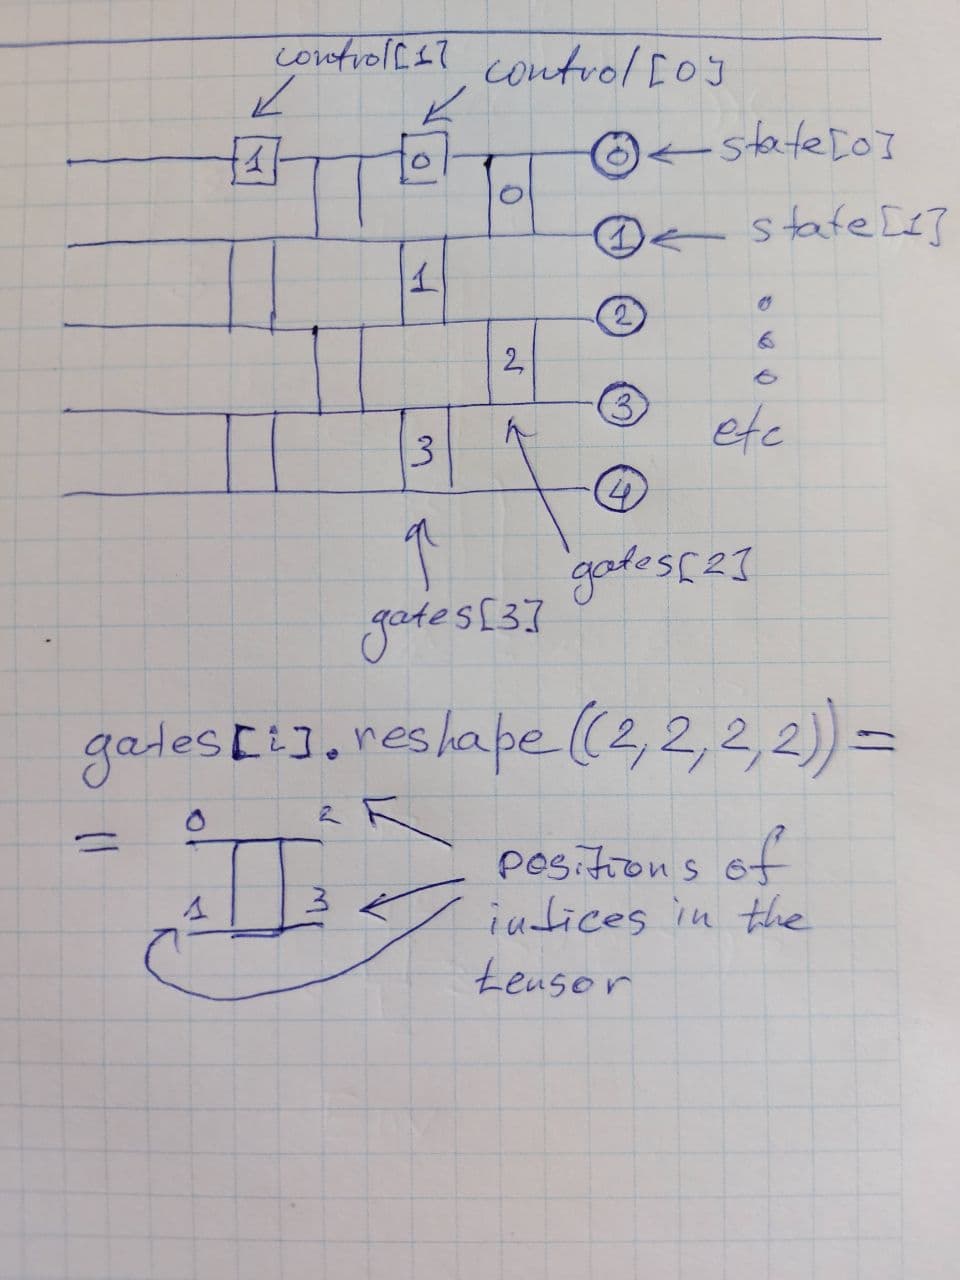 control[1] control[0]
1 0 0 0 ← state[0]
1 1 ← state[1]
2 2
3 3
etc
4
gates[2]
gates[3]
gates[i].reshape((2,2,2,2)) =
= 0 2
1 3
positions of
indices in the
tensor